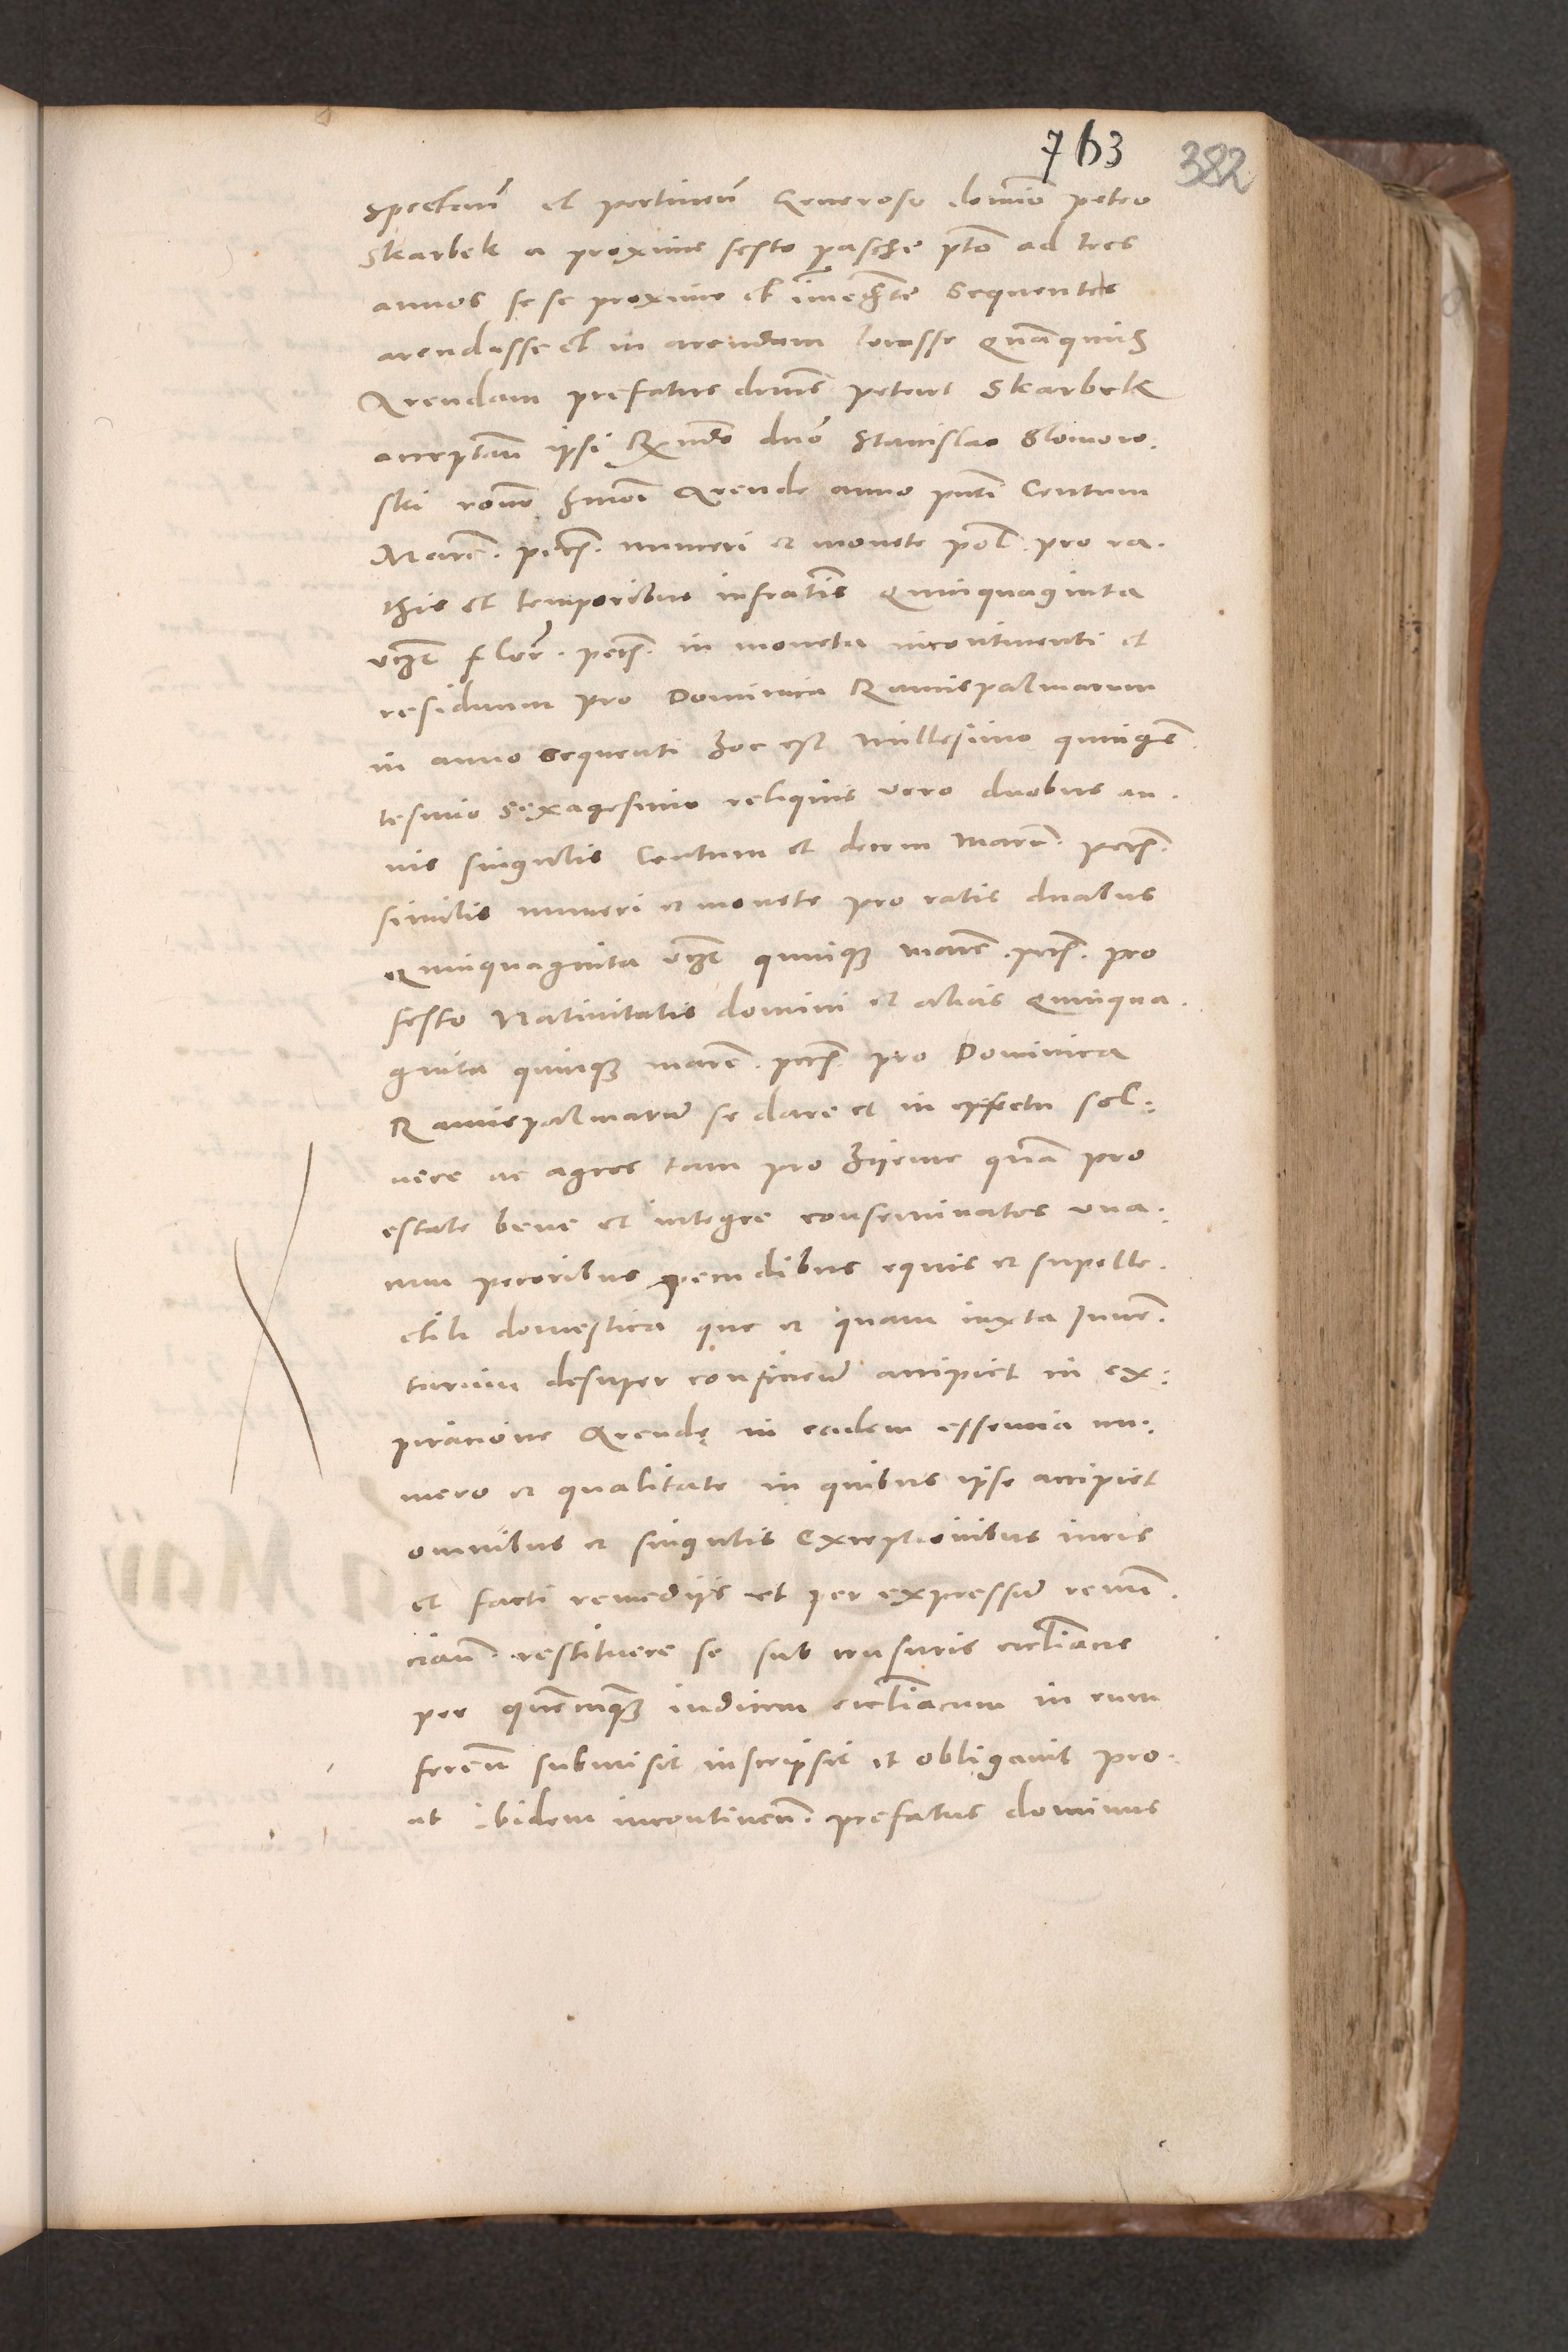 763 382
spectan̄ et pertinen̄ Generoso domino petro
Skarbek a proximo festo pasche pto ad tres
annos sese proxime et immediate sequentes
arendasse et in arendam locasse Quamquid
Arendam prefatus dnus petrus Skarbek
acceptan̄ ipsi Rndo dno Stanislao Slomow.
ski rone hmoi Arende anno pnti Centum
Marc. pecs. numeri et monete pol. pro ra.
this et temporibus infratis Quinquaginta
vtzt flor. pecs. in moneta incontinenti et
residuum pro Dominica Ramispalmarum
in anno sequenti hoc est millesimo quingē.
tesimo sexagesimo reliquis vero duobus an.
nis singulis Centum et decem Marc. pecs.
similis numeri et monete pro ratis duabus
Quinquaginta vtzt quinqz marc. pecs. pro
festo Natiuitatis domini et alias Quinqua.
ginta quinqz marc. pecs. pro Dominica
Ramispalmarum se dare et in effectu sol:
uere ac agros tam pro hijeme quam pro
estate bene et integre conseminatos una:
cum pecoribus pecudibus equis et supelle.
ctili domestica que et quam iuxta Inuē.
tarium desuper conficien̄ accipiet in ex:
piracione Arendę in eadem essencia nu:
mero et qualitate in quibus ipse accipiet
omnibus et singulis Exceptionibus iuris
et facti remedijs et per expressum renun̄.
cian̄. restituere se sub censuris eccliacis
per quemcumqz iudicem eccliacum in eum
feren̄ submisit inscripsit et obligauit pro.
ut ibidem incontinen̄. prefatus dominus